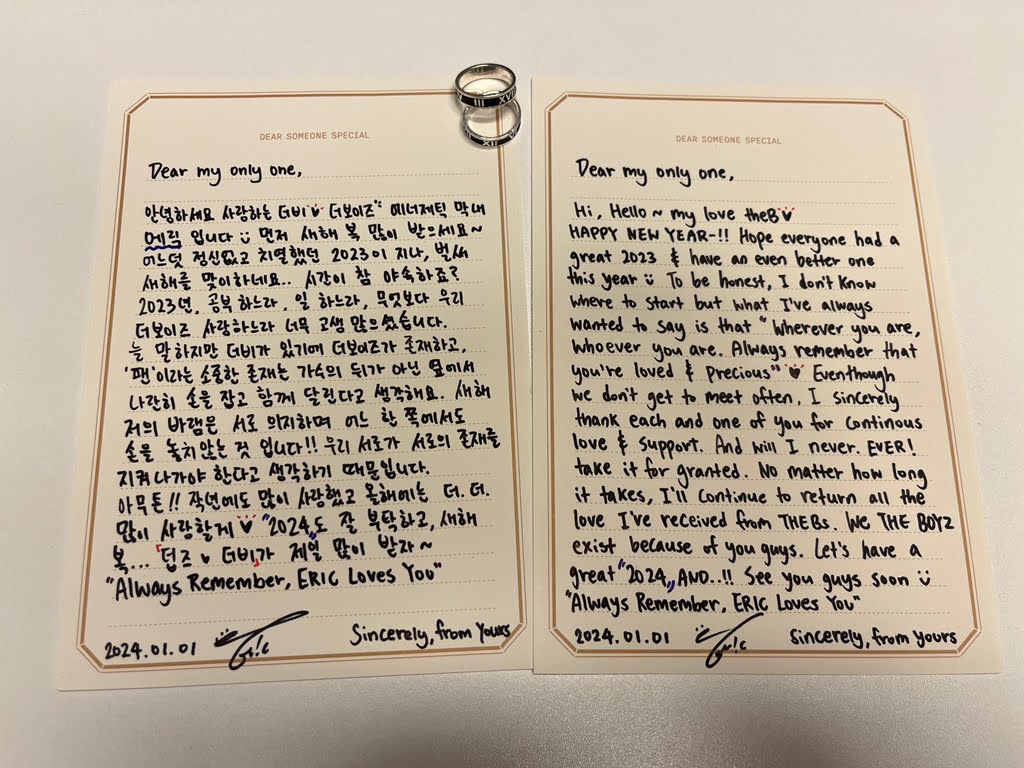 DEAR SOMEONE SPECIAL
Dear my only one,
안녕하세요 사랑하는 더비♥ 더보이즈" 에너제틱 막내
에릭 입니다 ü 먼저 새해 복 많이 받으세요~
어느덧 정신없고 치열했던 2023이 지나, 벌써
새해를 맞이하네요.. 시간이 참 야속하죠?
2023년, 공부 하느라, 일 하느라, 무엇보다 우리
더보이즈 사랑하느라 너무 고생 많으셨습니다.
늘 말하지만 더비가 있기에 더보이즈가 존재하고,
'팬'이라는 소중한 존재는 가수의 뒤가 아닌 옆에서
나란히 손을 잡고 함께 달린다고 생각해요. 새해
저의 바램은 서로 의지하며 어느 한 쪽에서도
손을 놓치않는 것 입니다!! 우리 서로가 서로의 존재를
지켜나가야 한다고 생각하기 때문입니다.
아무튼!! 작년에도 많이 사랑했고 올해에는 더. 더.
많이 사랑할게 ♥ "2024„도 잘 부탁하고, 새해
복... 「덥즈 ♥ 더비」가 제일 많이 받자~
"Always Remember, ERIC Loves You"
2024.01.01 Eric Sincerely, from yours
DEAR SOMEONE SPECIAL
Dear my only one,
Hi, Hello~ my love theB♥
HAPPY NEW YEAR-!! Hope everyone had a
great 2023 & have an even better one
this year ü To be honest, I don't know
where to start but what I've always
wanted to say is that "Wherever you are,
whoever you are. Always remember that
you're loved & precious" ♥ Eventhough
we don't get to meet often, I sincerely
thank each and one of you for continous
love & support. And will I never. EVER!
take it for granted. No matter how long
it takes, I'll continue to return all the
love I've received from THEBs. We THE BOYZ
exist because of you guys. Let's have a
great "2024„ AND..!! See you guys soon ü
"Always Remember, ERIC Loves You"
2024.01.01 Eric Sincerely, from yours
III XVI
XII